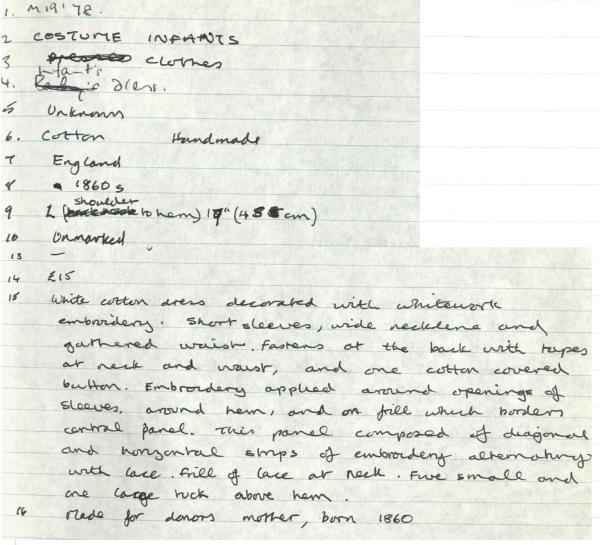 1. M19'78.
2 COSTUME INFANTS
3 Clothes
4. Infant's dress.
5 Unknown
6. Cotton Handmade
7 England
8 1860s
9 L (shoulder to hem) (cm)
10 Unmarked
13 —
14 £15
15 White cotton dress decorated with whitework
embroidery. Short sleeves, wide neckline and
gathered waist. Fastens at the back with tapes
at neck and waist, and one cotton covered
button. Embroidery applied around openings of
sleeves, around hem, and on frill which borders
central panel. This panel composed of diagonal
and horizontal strips of embroidery alternating
with lace. Frill of lace at neck. Five small and
one large tuck above hem.
16 Made for donors mother, born 1860